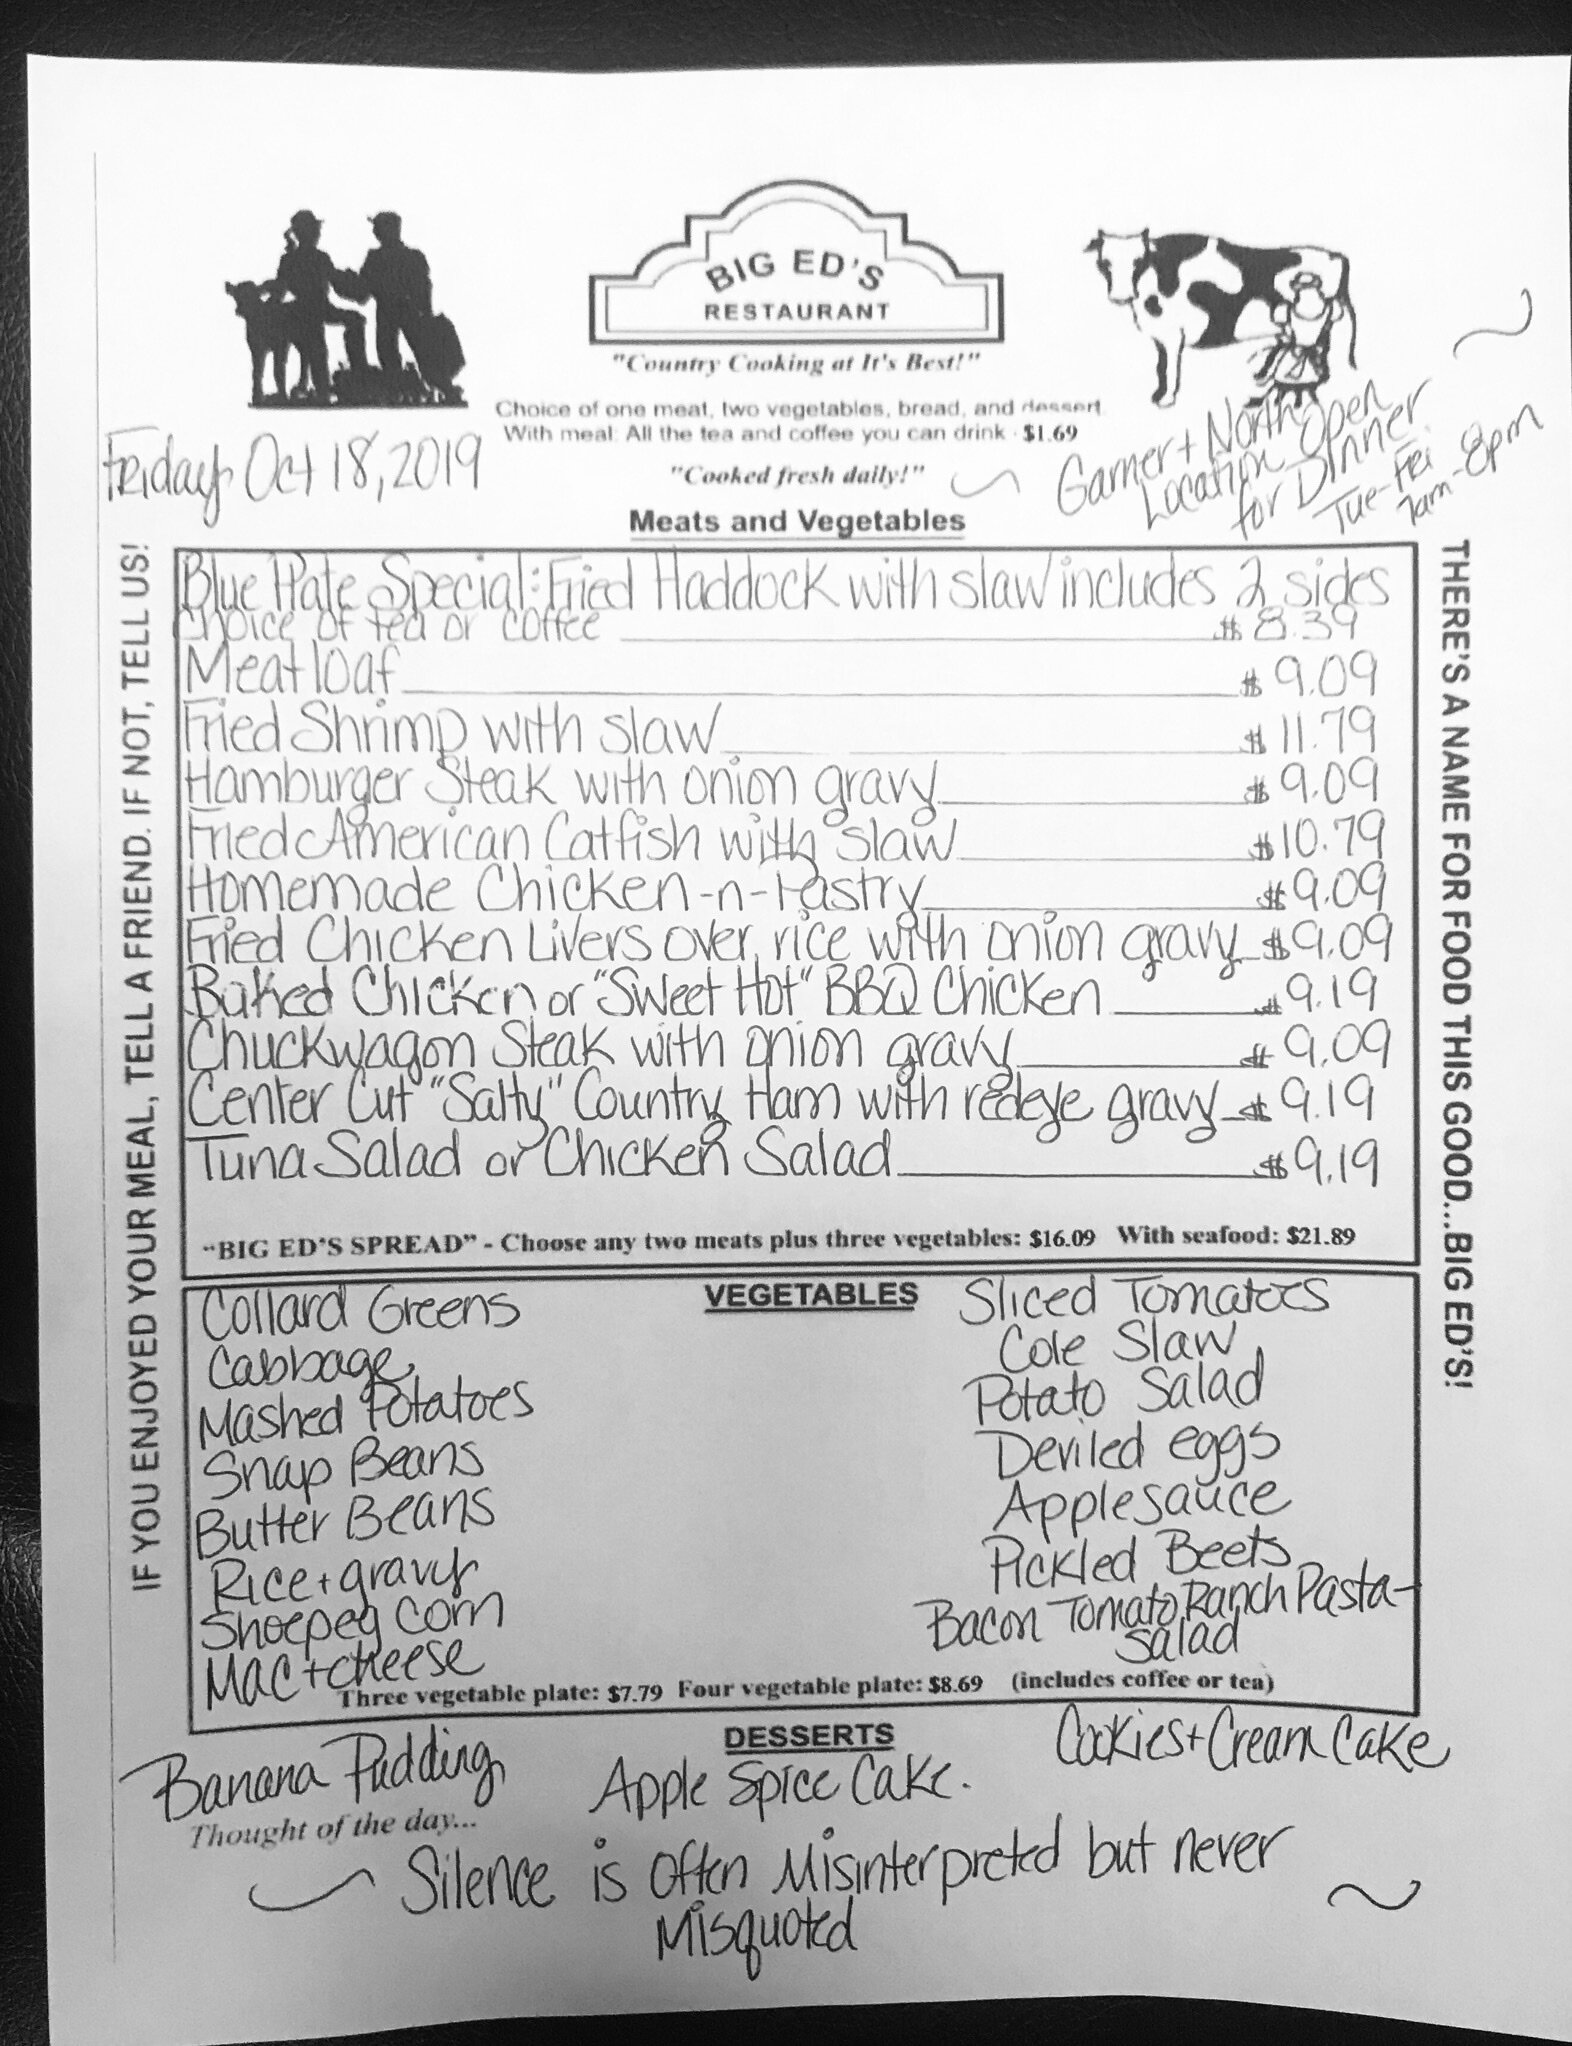 BIG ED'S
RESTAURANT
"Country Cooking at It's Best!"
Choice of one meat, two vegetables, bread, and dessert
With meal: All the tea and coffee you can drink - $1.69
"Cooked fresh daily!"
Friday Oct 18, 2019
Garner + North
Location Open
for Dinner
Tue-Fri
7am-8pm
Meats and Vegetables
IF YOU ENJOYED YOUR MEAL, TELL A FRIEND. IF NOT, TELL US!
THERE'S A NAME FOR FOOD THIS GOOD...BIG ED'S!
Blue Plate Special: Fried Haddock with slaw includes 2 sides
Choice of tea or coffee $8.39
Meatloaf $9.09
Fried Shrimp with slaw $11.79
Hamburger Steak with onion gravy $9.09
Fried American Catfish with slaw $10.79
Homemade Chicken-n-Pastry $9.09
Fried Chicken Livers over rice with onion gravy $9.09
Baked Chicken or "Sweet Hot" BBQ Chicken $9.19
Chuckwagon Steak with onion gravy $9.09
Center Cut "Salty" Country Ham with redeye gravy $9.19
Tuna Salad or Chicken Salad $9.19
"BIG ED'S SPREAD" - Choose any two meats plus three vegetables: $16.09 With seafood: $21.89
VEGETABLES
Collard Greens
Cabbage
Mashed Potatoes
Snap Beans
Butter Beans
Rice + gravy
Shoepeg Corn
Mac + cheese
Sliced Tomatoes
Cole Slaw
Potato Salad
Deviled eggs
Applesauce
Pickled Beets
Bacon Tomato Ranch Pasta-
Salad
Three vegetable plate: $7.79 Four vegetable plate: $8.69 (includes coffee or tea)
DESSERTS
Banana Pudding
Apple Spice Cake.
Cookies + Cream Cake
Thought of the day...
Silence is Often Misinterpreted but never
Misquoted